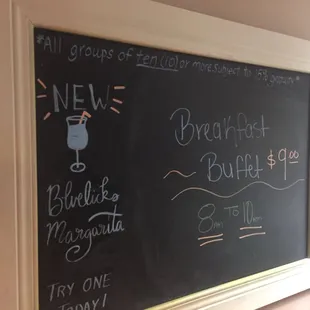 *All groups of ten (10) or more subject to 18% gratuity*
NEW
Bluelicks
Margarita
TRY ONE
TODAY!
Breakfast
Buffet $9.00
8am TO 10am